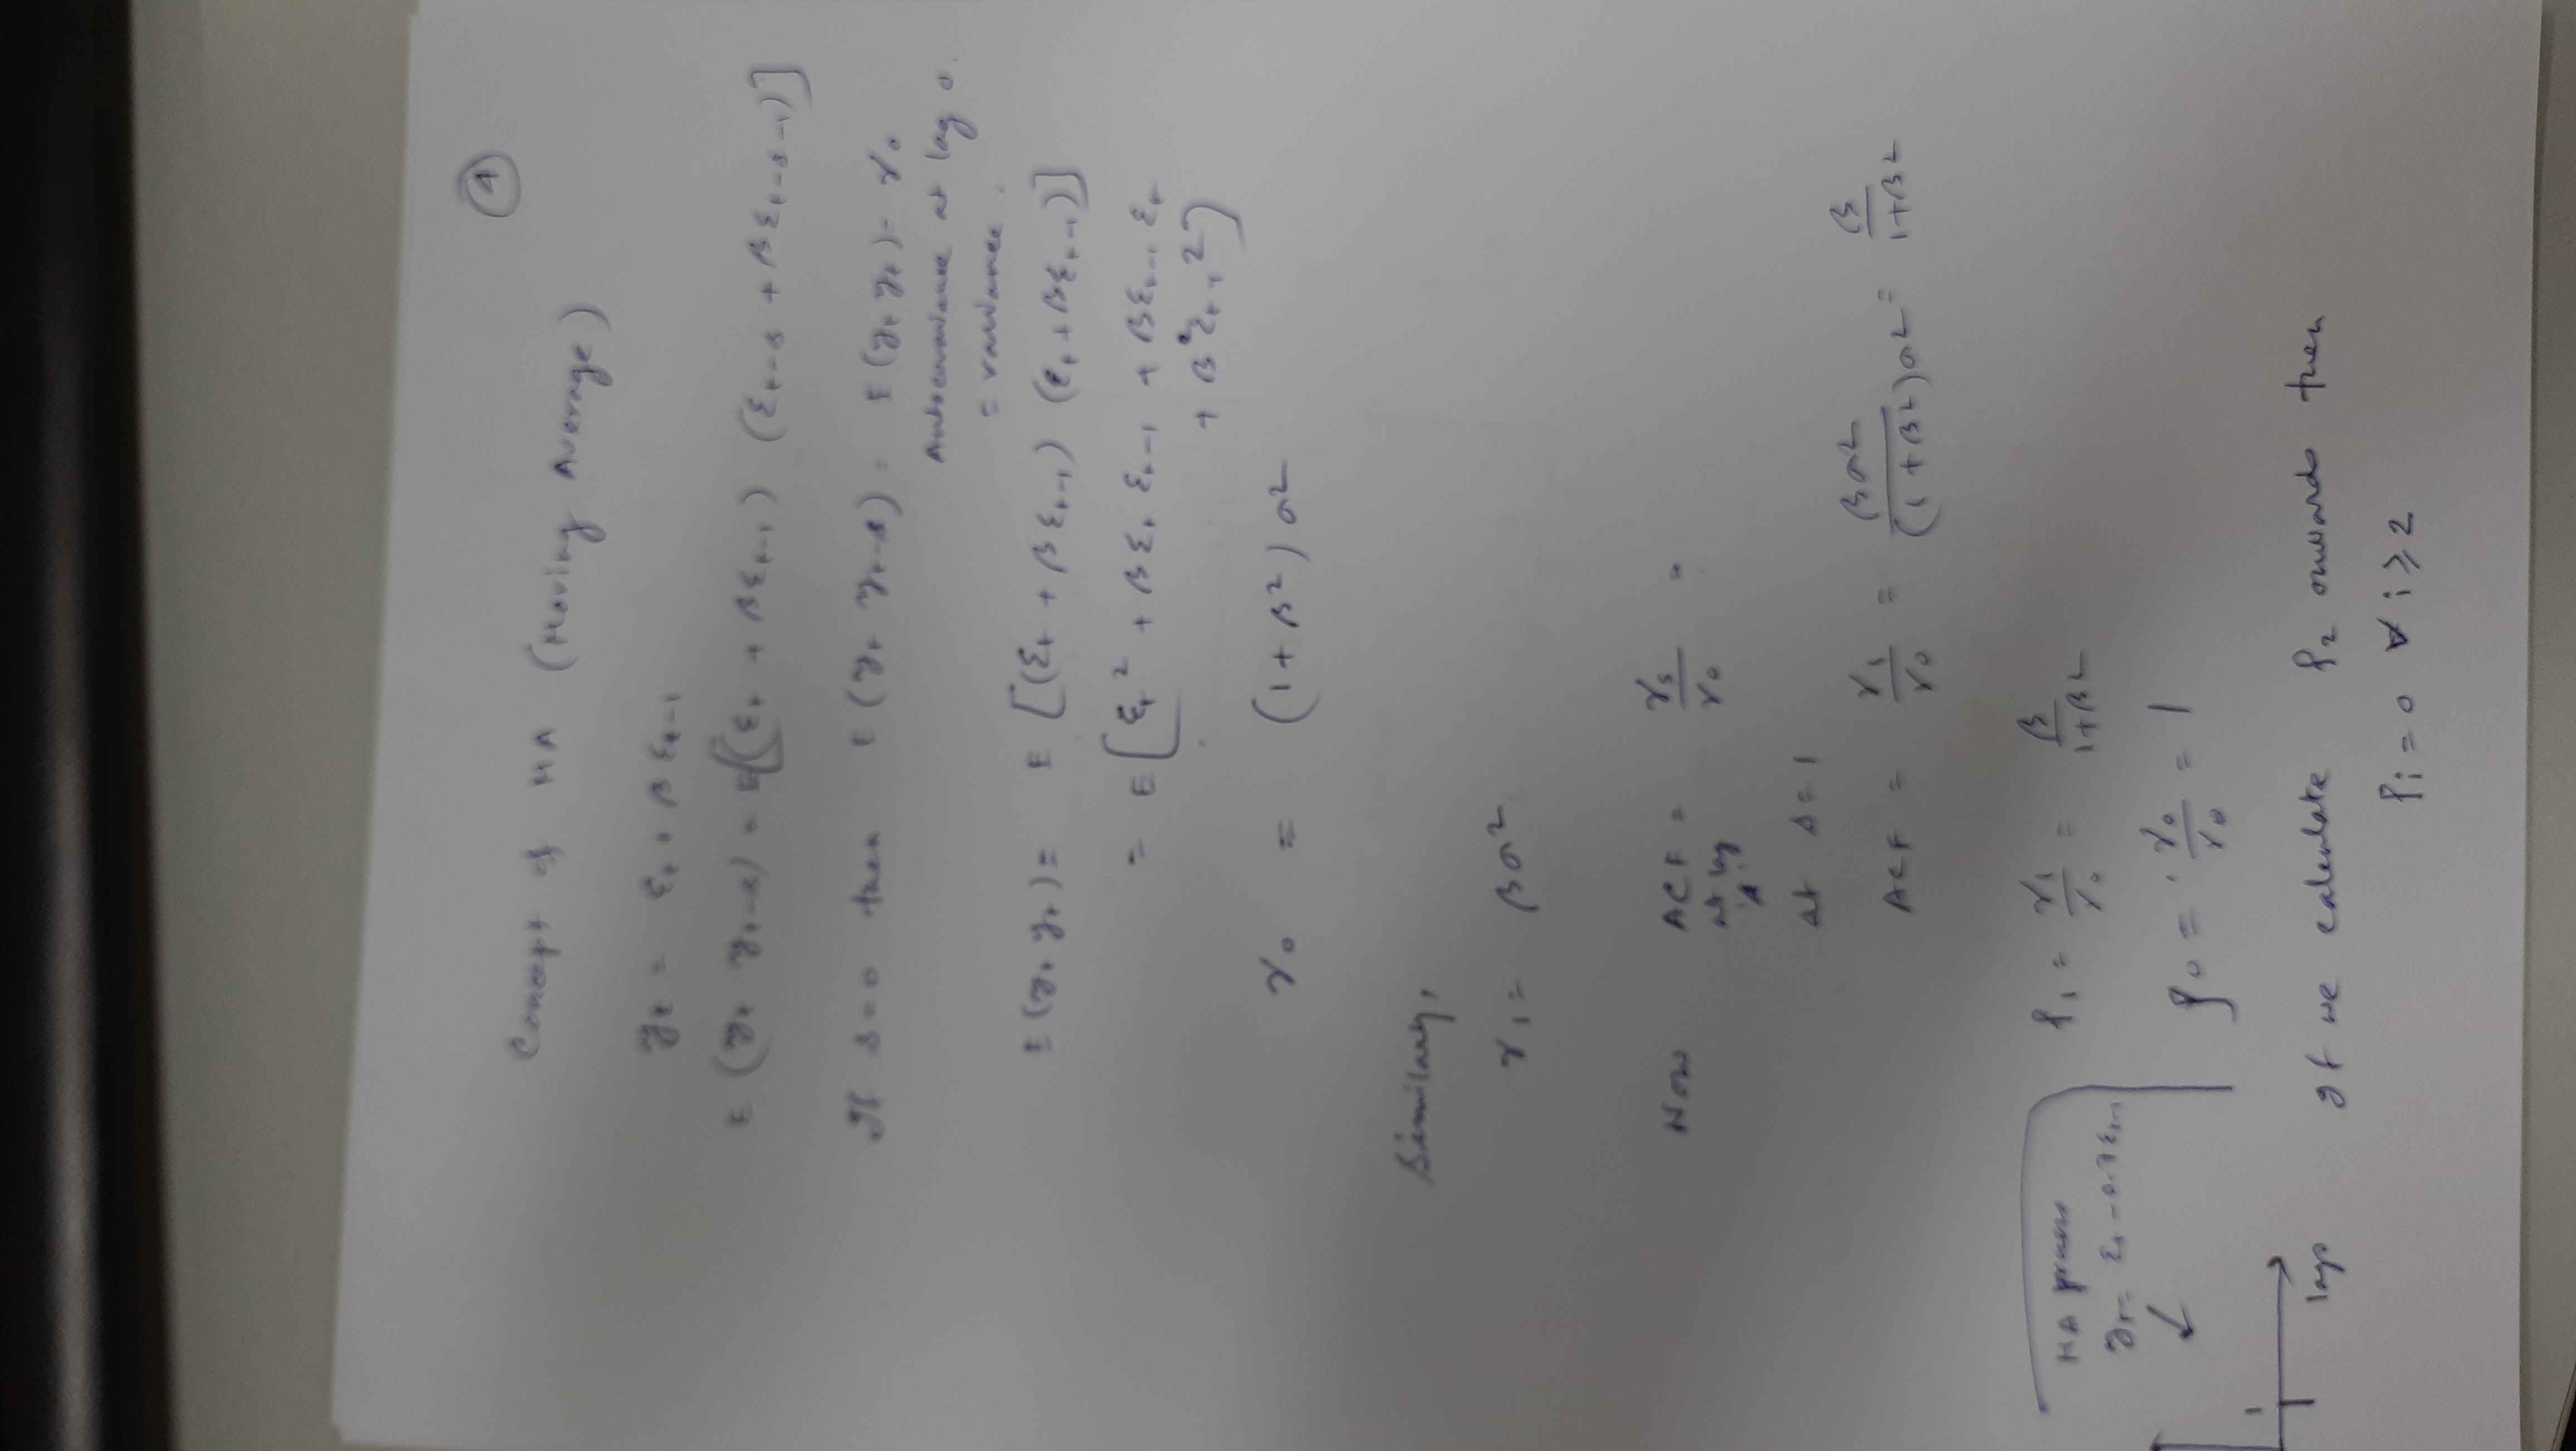 4
Concept of MA (Moving Average)
yt = εt + β εt-1
E (yt yt-s) = E[(εt + βεt-1) (εt-s + βεt-s-1)]
If s=0 then E (yt yt-s) = E (yt yt) = γ0
Autocovariance at lag 0.
= variance.
E (yt yt) = E [(εt + βεt-1) (εt + βεt-1)]
= E [εt² + βεt εt-1 + βεt-1 εt
+ β²εt-1²]
γ0 = (1+β²) σ²
Similarly,
γ1 = βσ²
Now ACF = γs/γ0 =
at lag
's'
at s=1
ACF = γ1/γ0 = βσ²/(1+β²)σ² = β/1+β²
ρ1 = γ1/γ0 = β/1+β²
MA process
yt = εt - 0.7εt-1
ρ0 = γ0/γ0 = 1
1
lags
If we calculate ρ2 onwards then
ρi = 0 ∀ i ≥ 2